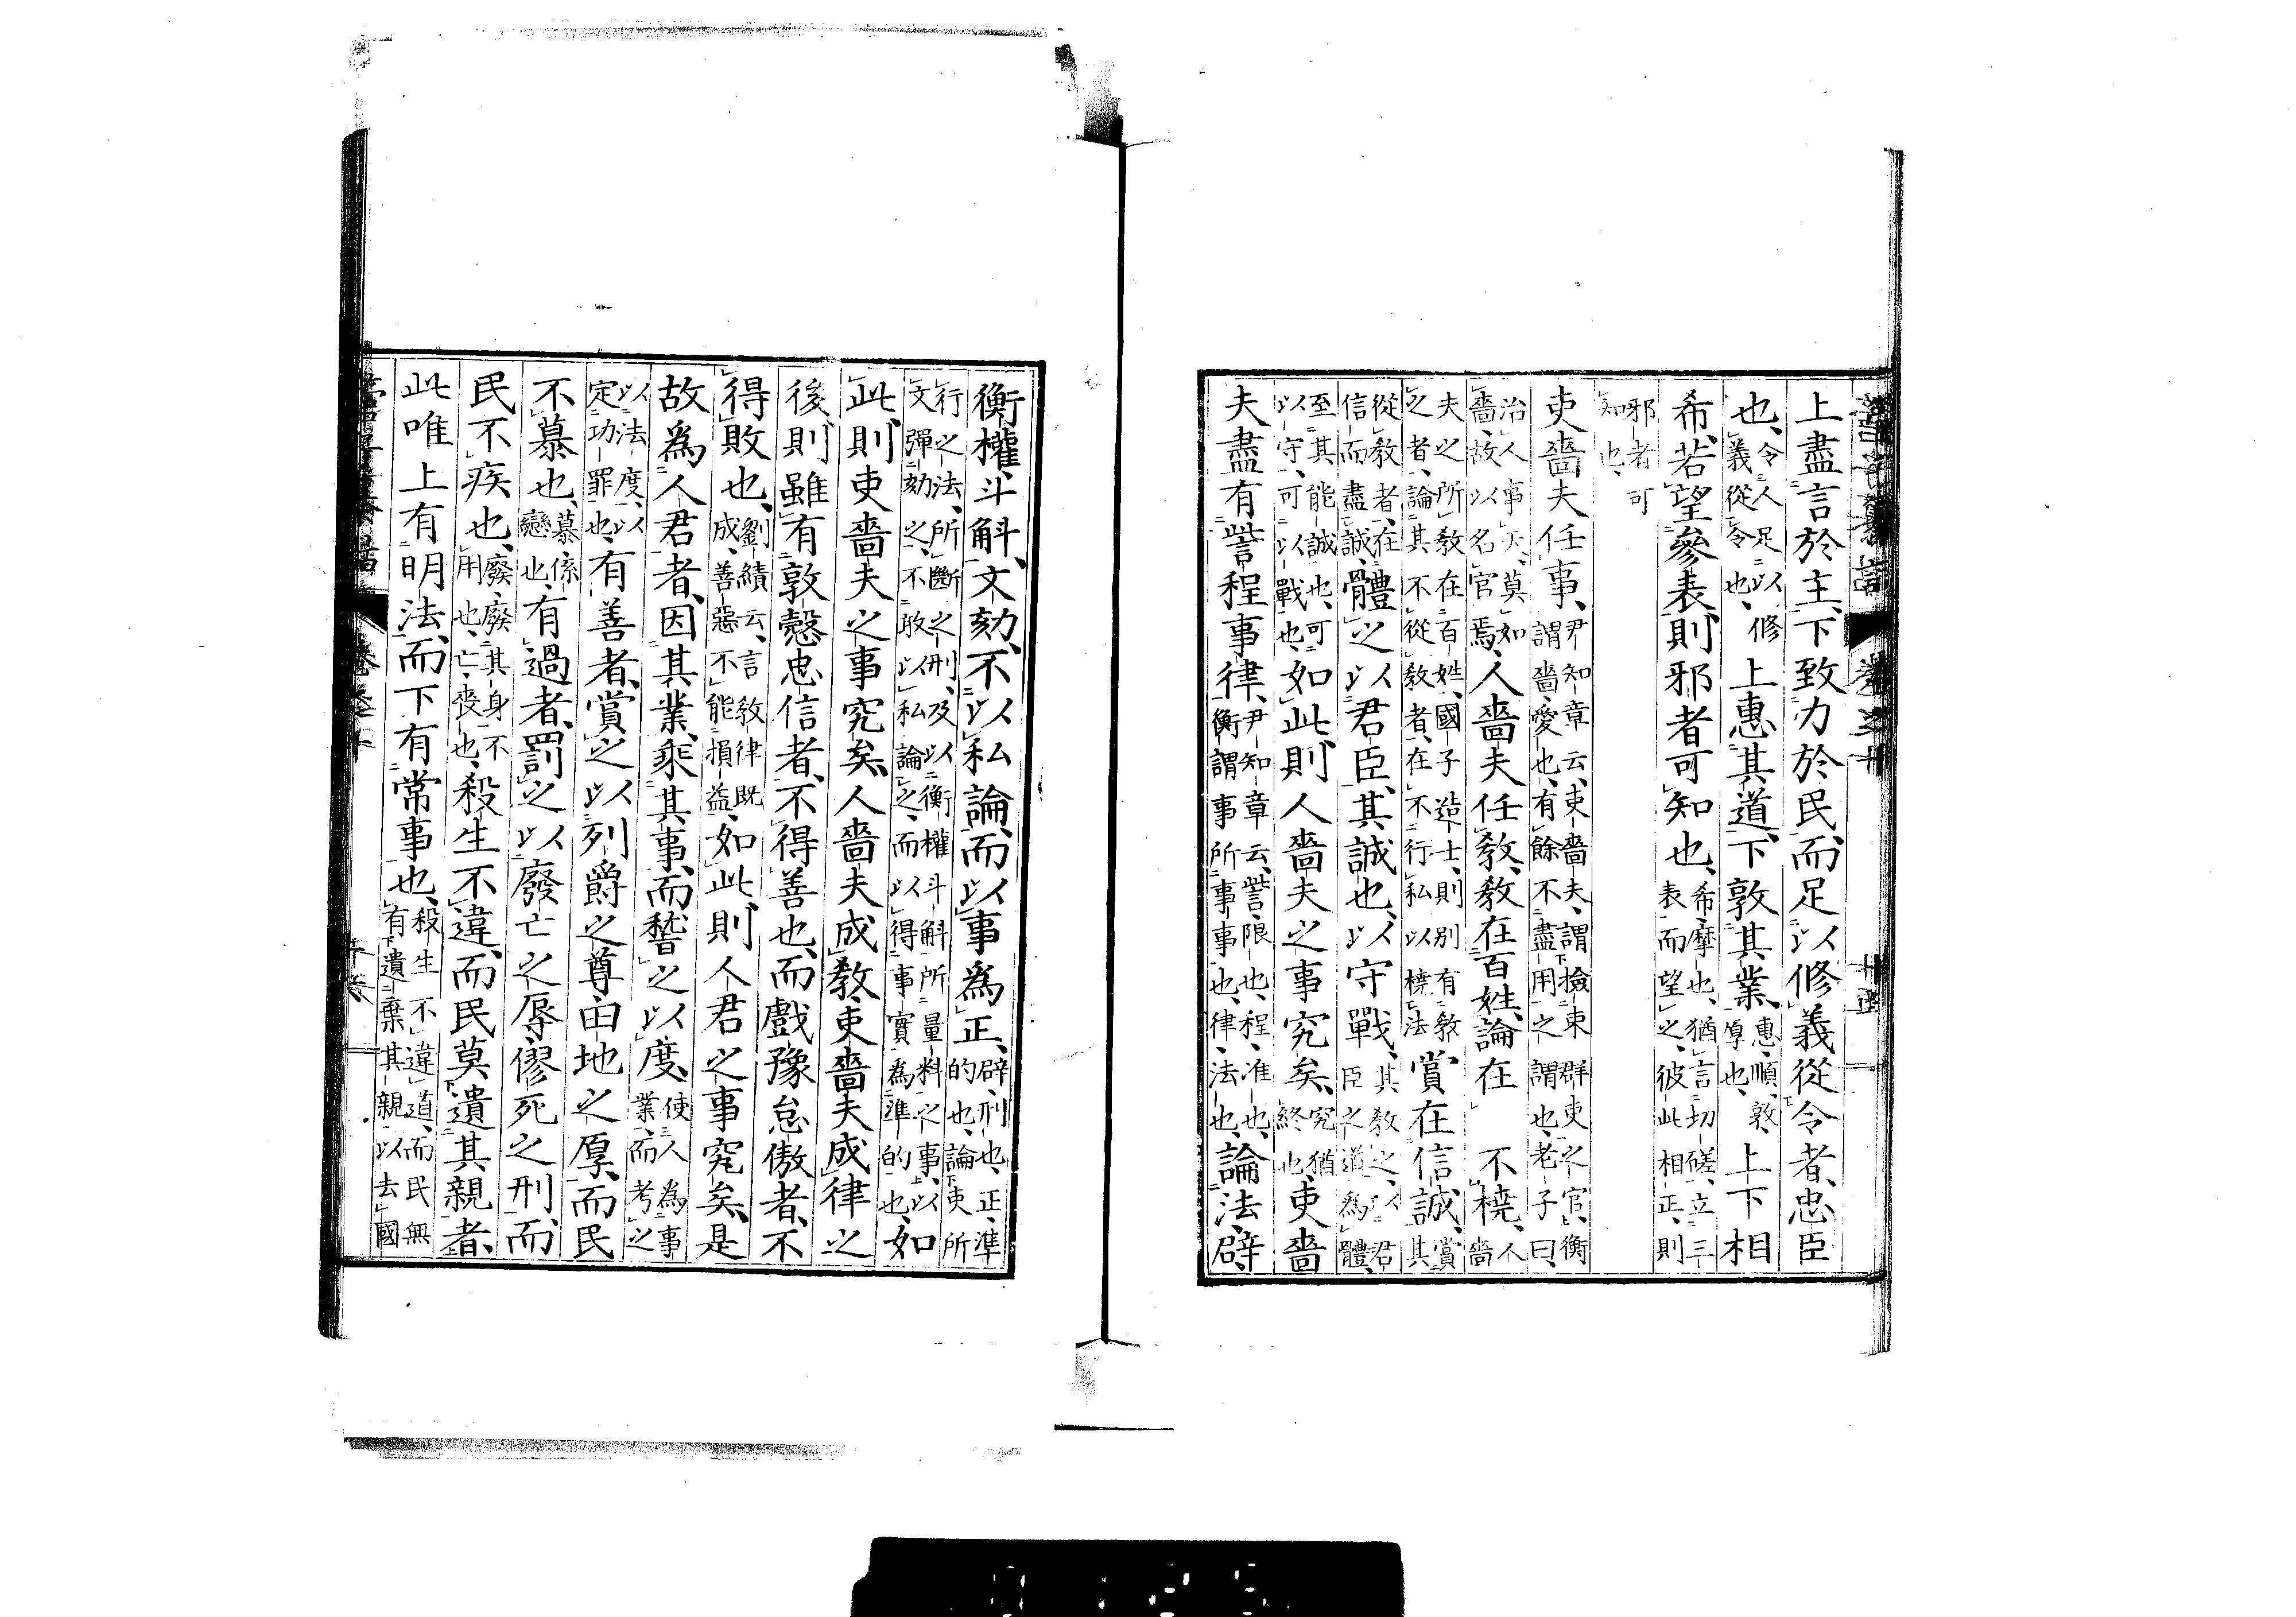 上盡言於主、下致力於民、而足以修義從令者、忠臣
也、令人足以修義從令也、上惠其道、下敦其業、惠、順、敦、厚也、上下相
希、若望參表、則邪者可知也、希、摩也、猶言切磋、立三表而望之、彼此相正、則
邪者可知也、
吏嗇夫任事、尹知章云、吏嗇夫、謂撿束群吏之官、衡謂、嗇、愛也、有餘不盡用之謂也、老子曰、
治人事天、莫如嗇、故以名官焉、人嗇夫任敎、敎在百姓、論在不橈、人嗇
夫之所敎在百姓、國子造士、則別有敎之者、論其不從敎者、在不行私以橈法、賞在信誠、賞其
從敎者、在信而盡誠、體之以君臣、其誠也、以守戰、其敎之、以君臣之道爲體、
至其能誠也、可以守、可以戰也、如此、則人嗇夫之事究矣、究猶終也、吏嗇
夫盡有訾程事律、尹知章云、訾、限也、程、准也、衡謂事所事事也、律、法也、論法、辟、
衡權、斗斛、文劾、不以私論、而以事爲正、辟、刑也、正、準的也、論吏所
行之法、所斷之刑、及以衡權斗斛所量料之事、以文彈劾之、不敢以私論之、而以得事實爲準的也、如
此、則吏嗇夫之事究矣、人嗇夫成敎、吏嗇夫成律之
後、則雖有敦慤忠信者、不得善也、而戲豫怠傲者、不
得敗也、劉績云、言敎律既成、善惡不能損益、如此、則人君之事究矣、是
故爲人君者、因其業、乘其事、而稽之以度、使人爲事業、而考之
以法度、以定功罪也、有善者、賞之以列爵之尊、田地之厚、而民
不慕也、慕係戀也、有過者、罰之以廢亡之辱、僇死之刑、而
民不疾也、廢、廢其身不用也、亡、喪也、殺生不違、而民莫遺其親者、
此唯上有明法、而下有常事也、殺生不違道、而民無有遺棄其親以去國